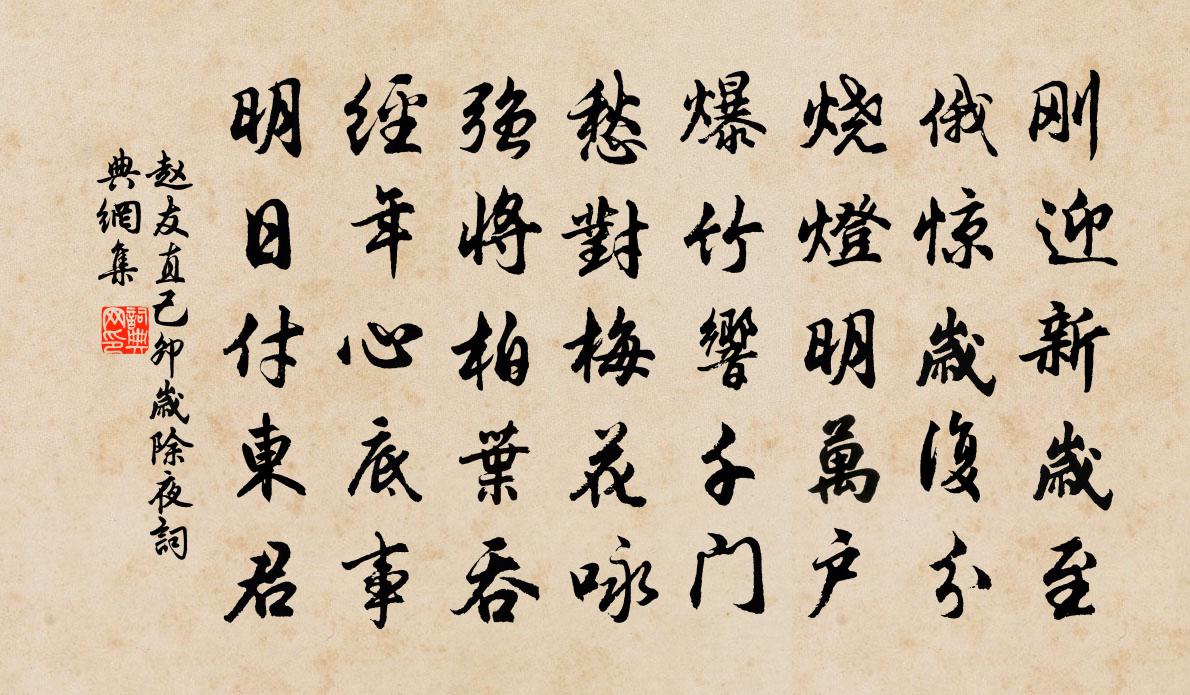 刚迎新歲至
俄惊歲復分
烧燈明萬户
爆竹響千门
愁對梅花咏
強将柏葉吞
經年心底事
明日付東君
赵友直己卯歲除夜詞
典網集
詞典
网印